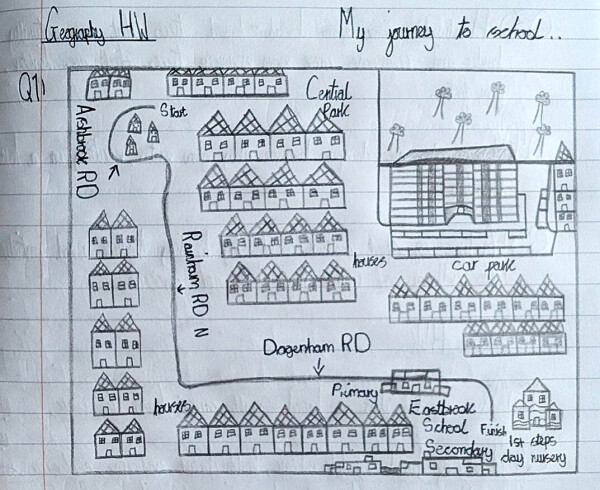 Geography HW
My journey to school..
Q1)
Central
Park
Start
Ashbrook RD
Rainham RD N
houses
car park
Dagenham RD
Primary
houses
Eastbrook
School
Secondary
Finish
1st steps
day nursery